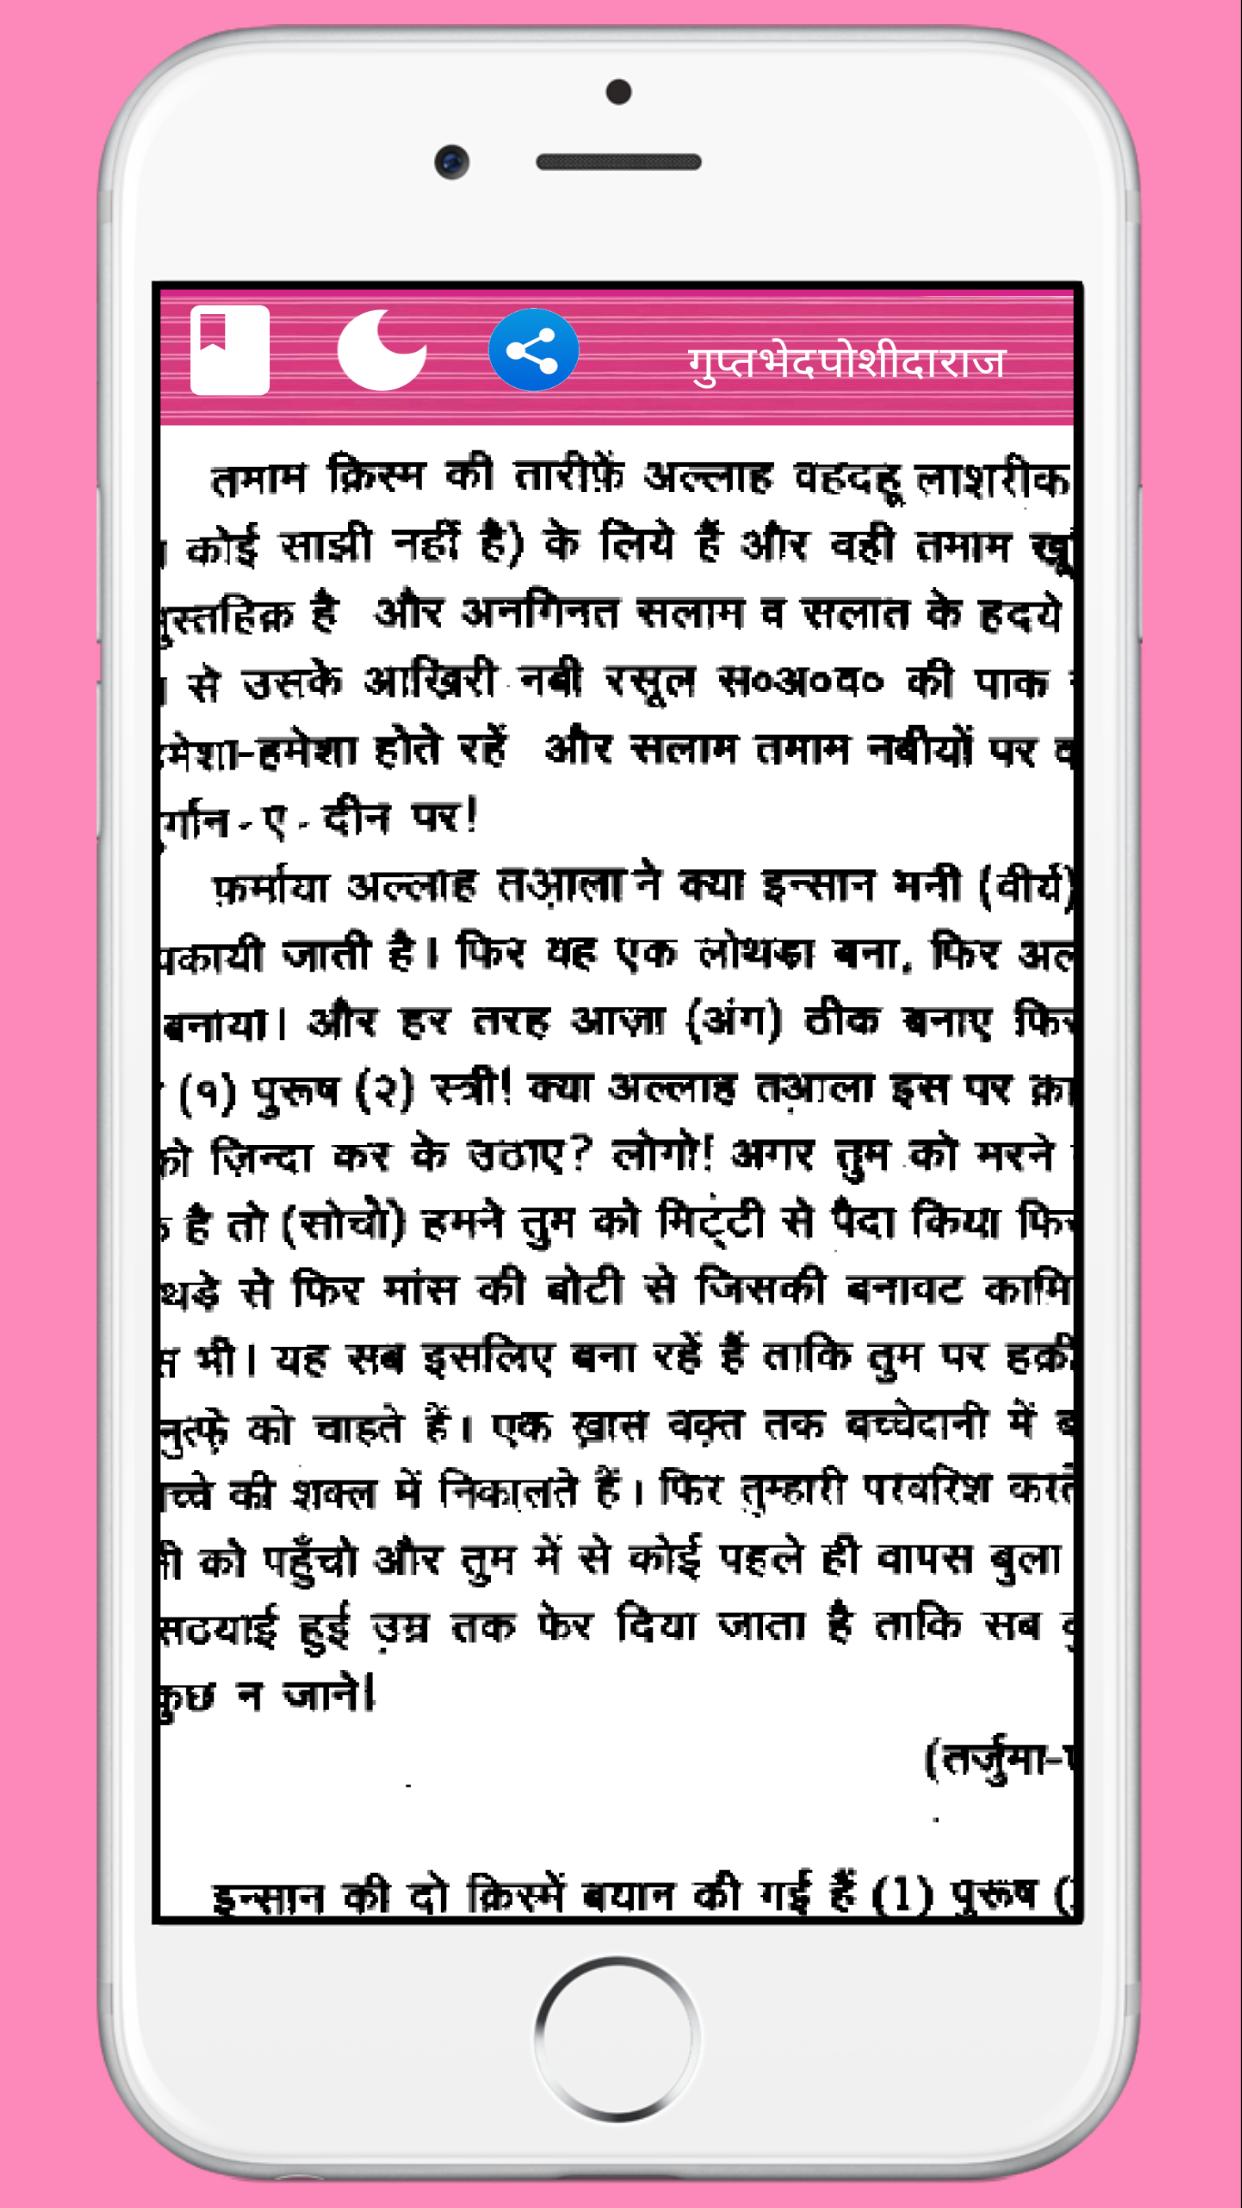 गुप्तभेदपोशीदाराज
तमाम क़िस्म की तारीफ़ें अल्लाह वहदहू लाशरीक
कोई साझी नहीं है) के लिये हैं और वही तमाम
है और अनगिनत सलाम व सलात के हदये
से उसके आख़िरी नबी रसूल स०अ०व० की पाक
-हमेशा होते रहें और सलाम तमाम नबीयों पर
- ए - दीन पर!
फ़र्माया अल्लाह तआ़ला ने क्या इन्सान मनी (वीर्य)
जाती है। फिर यह एक लोथड़ा बना, फिर
बनाया। और हर तरह आज़ा (अंग) ठीक बनाए फिर
(१) पुरूष (२) स्त्री! क्या अल्लाह तआ़ला इस पर
को ज़िन्दा कर के उठाए? लोगो! अगर तुम को मरने
है तो (सोचो) हमने तुम को मिट्टी से पैदा किया फिर
से फिर मांस की बोटी से जिसकी बनावट
भी। यह सब इसलिए बना रहें हैं ताकि तुम पर
नुत्फ़े को चाहते हैं। एक ख़ास वक़्त तक बच्चेदानी में
की शक्ल में निकालते हैं। फिर तुम्हारी परवरिश करते
को पहुँचो और तुम में से कोई पहले ही वापस बुला
सठयाई हुई उम्र तक फेर दिया जाता है ताकि सब
कुछ न जाने।
(तर्जुमा-
इन्सान की दो क़िस्में बयान की गई हैं (1) पुरूष